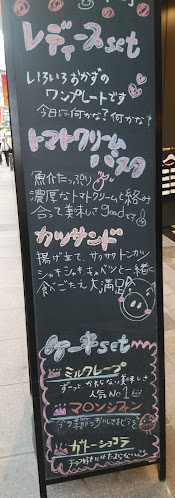 レディースset
いろいろおかずの
ワンプレートです
今日は何かな？何かな？
トマトクリーム
パスタ
魚介たっぷり
濃厚なトマトクリームと絡み
合って美味しさgoodです
カツサンド
揚げ立て、サクサクトンカツ
シャキシャキキャベツと一緒に
食べごたえ大満足!
ケーキset
ミルクレープ
ずーっとかわらない美味しさ
人気No1
マロンシフォン
ガトーショコラ